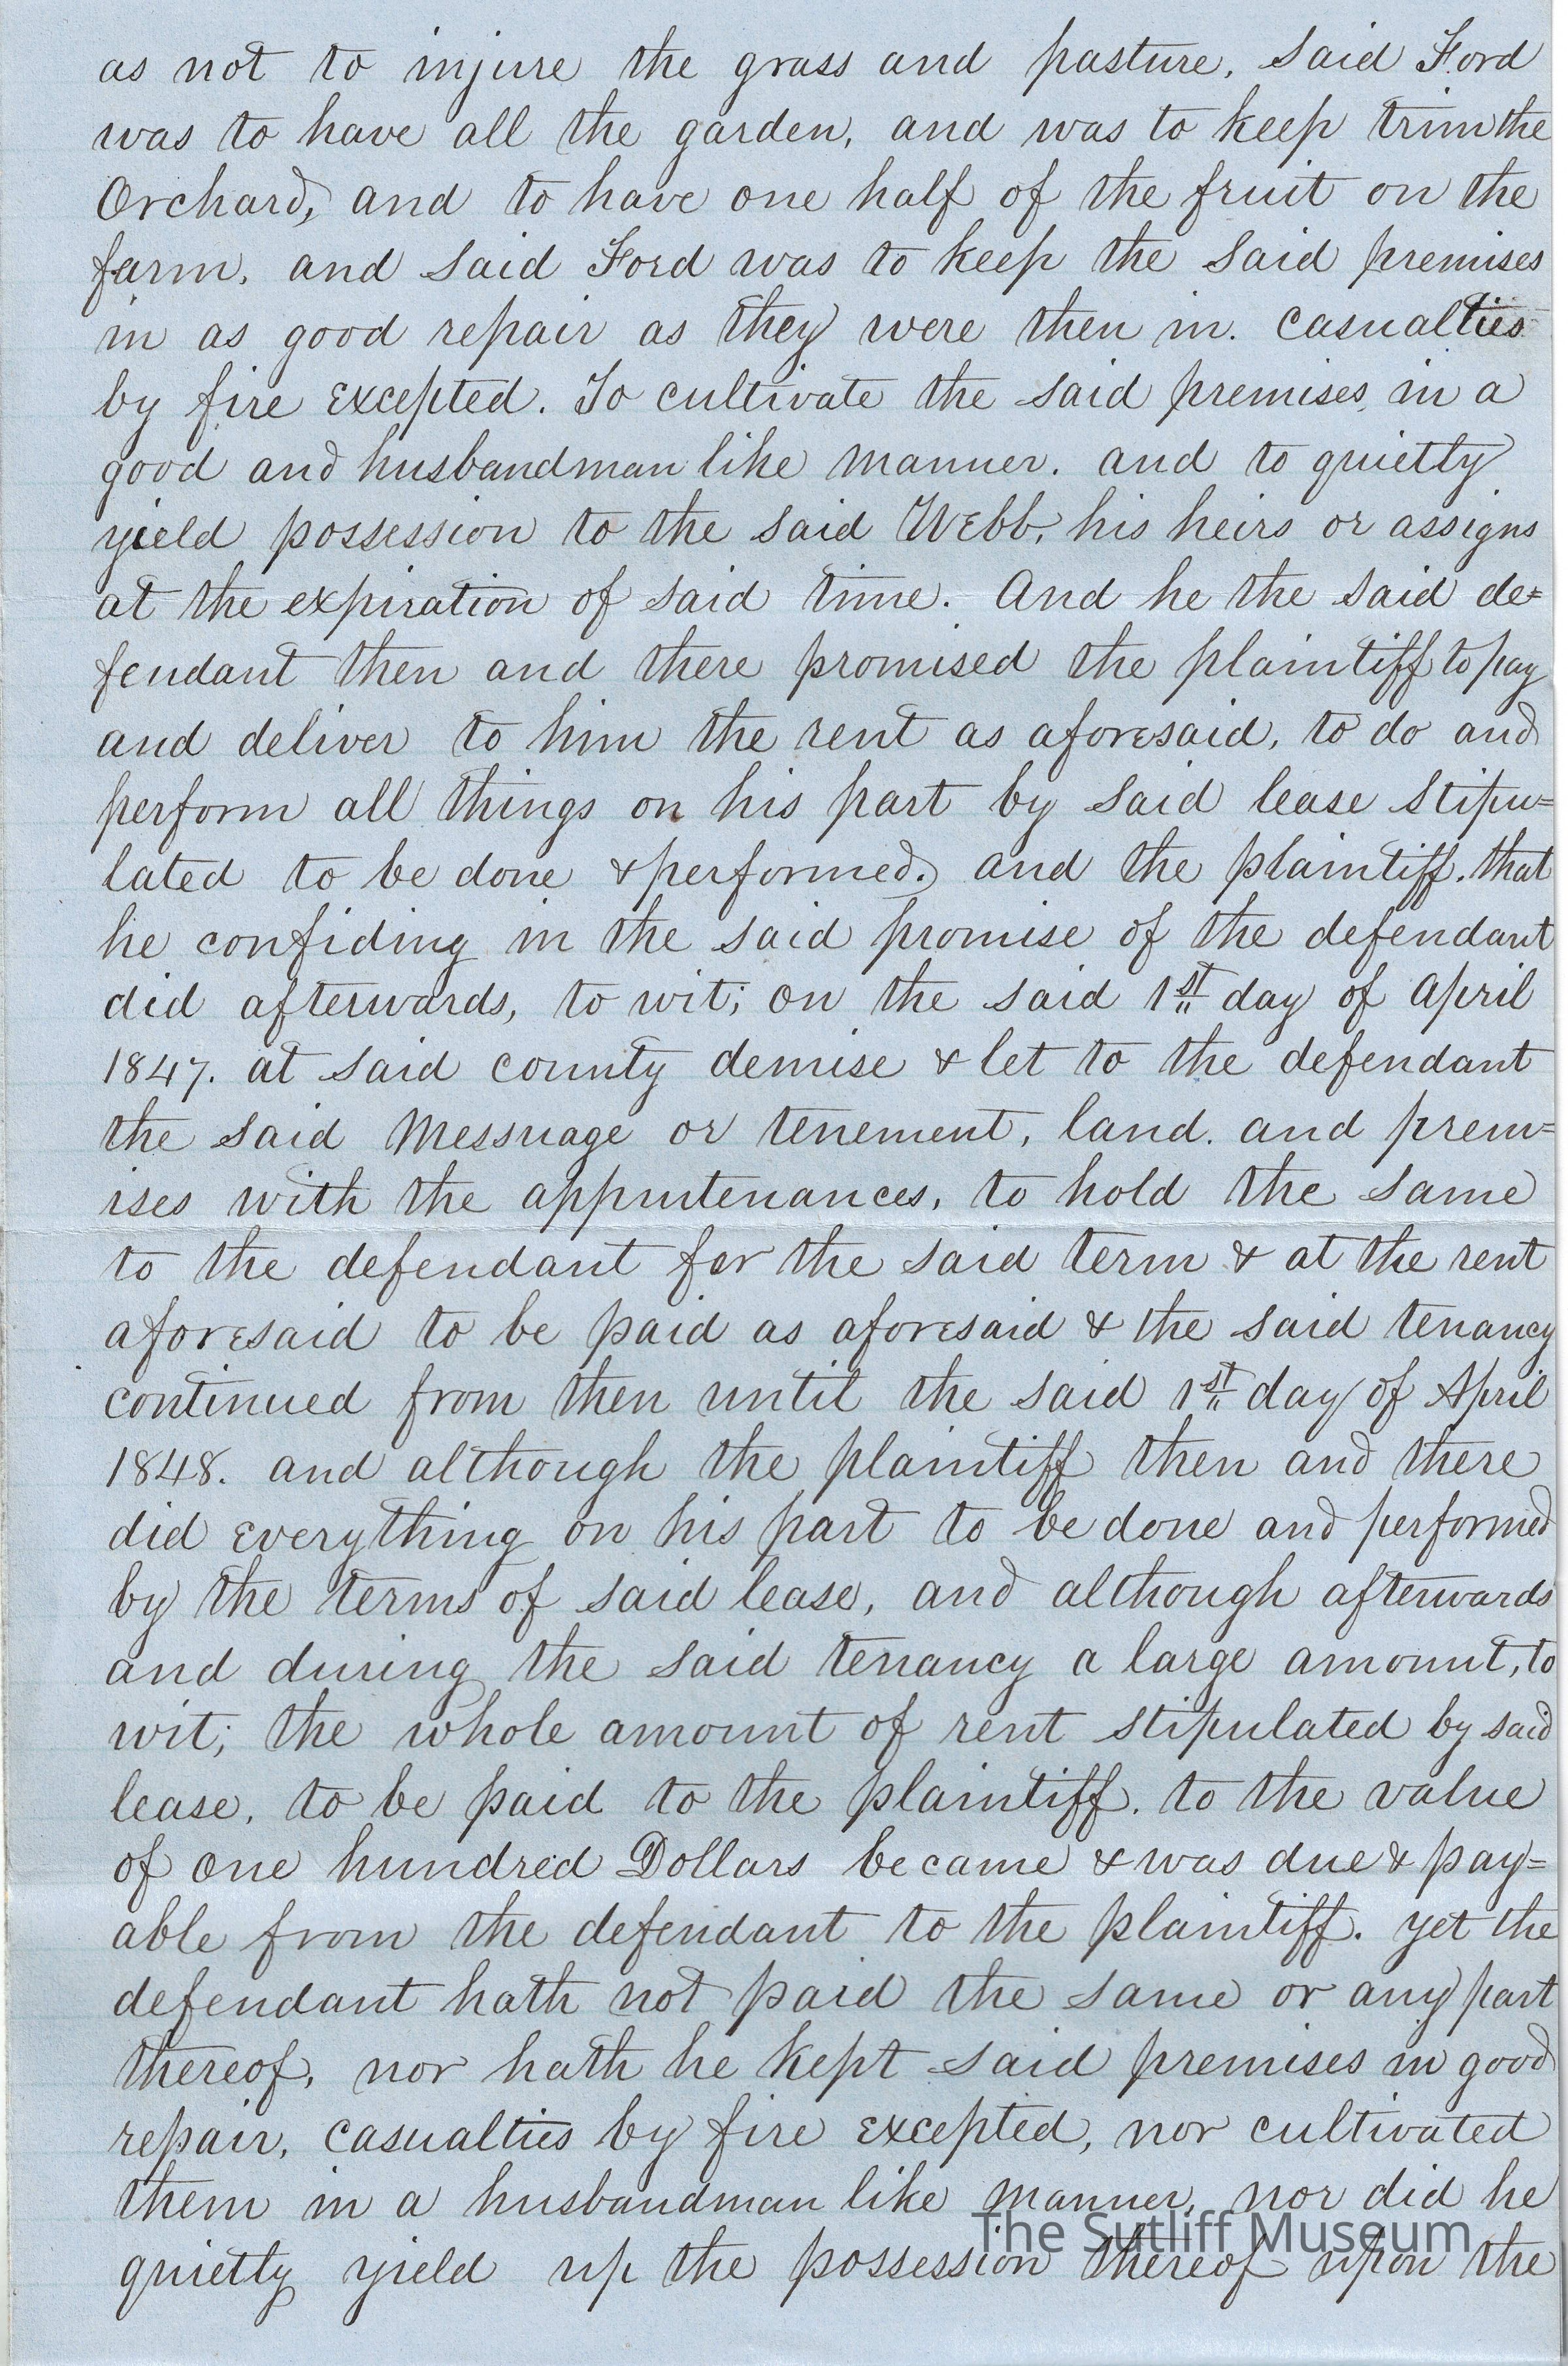 as not to injure the grass and pasture, said Ford
was to have all the garden, and was to keep trim the
Orchard, and to have one half of the fruit on the
farm, and said Ford was to keep the said premises
in as good repair as they were then in. casualties
by fire excepted. To cultivate the said premises in a
good and husbandman like manner. and to quietly
yield possession to the said Webb, his heirs or assigns
at the expiration of said time. And he the said de=
fendant then and there promised the plaintiff to pay
and deliver to him the rent as aforesaid, to do and
perform all things on his part by said lease stipu=
lated to be done & performed. and the plaintiff. that
he confiding in the said promise of the defendant
did afterwards, to wit; on the said 1st day of April
1847. at said county demise & let to the defendant
the said Messuage or tenement, land. and prem=
ises with the appurtenances, to hold the same
to the defendant for the said term & at the rent
aforesaid to be paid as aforesaid & the said tenancy
continued from then until the said 1st day of April
1848. and although the plaintiff then and there
did everything on his part to be done and performed
by the terms of said lease, and although afterwards
and during the said tenancy a large amount, to
wit; the whole amount of rent stipulated by said
lease, to be paid to the plaintiff. to the value
of one hundred Dollars became & was due & pay=
able from the defendant to the plaintiff. yet the
defendant hath not paid the same or any part
thereof, nor hath he kept said premises in good
repair, casualties by fire excepted, nor cultivated
them in a husbandman like manner, nor did he
quietly yield up the possession thereof upon the
The Sutliff Museum